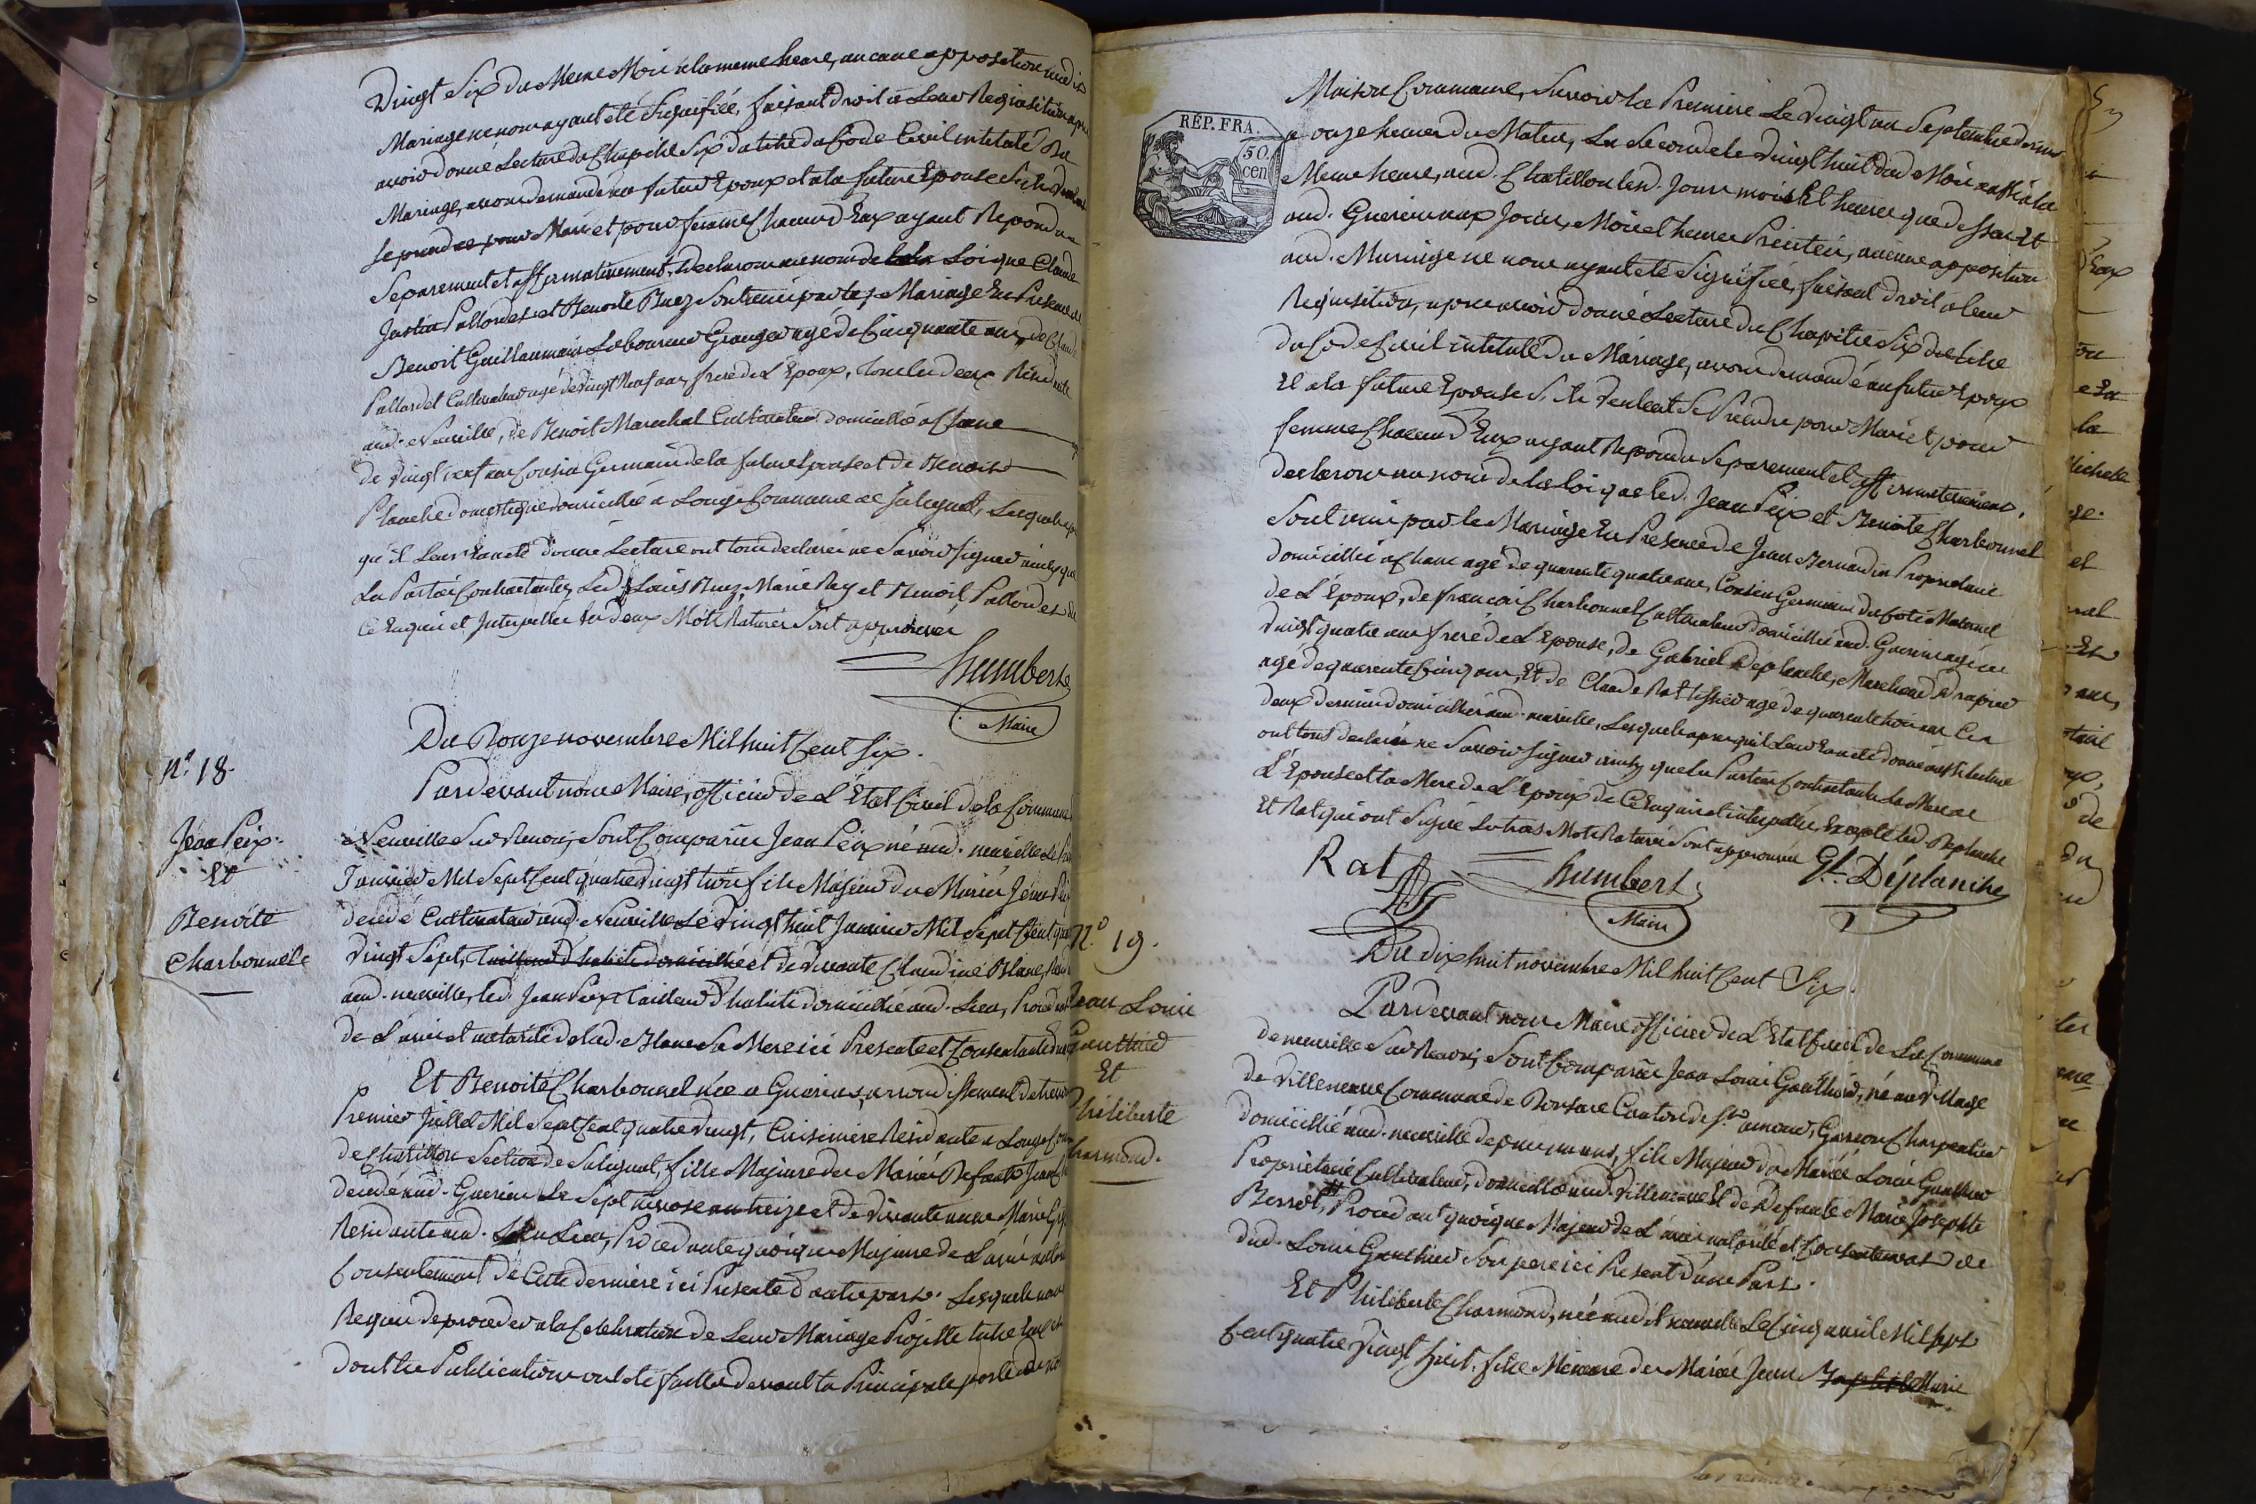 Vingt Six du Meme Mois a la meme heure, aucune opposition aud.
Mariage ne nous ayant été Signifiée, faisant droit à Leur Requisition apres
avoir donné Lecture du Chapitre Six du titre du Code Civil intitulé Du
Mariage, avons demandé au futur Epoux et a la future Epouse S'ils veulent
se prendre pour Mari et pour femme Chacun d'Eux ayant Repondu
Separement et affirmativement, Declarons au nom de la Loi que Claude
Justin Pallordet et Benoite Buez Sont unis par le Mariage En Presence de
Benoit Guillaumain Laboureur Granger agé de Cinquante ans, de Claude
Pallordet Cultivateur agé de vingt Neuf ans frere de L'Epoux, tous les deux Residents
aud. Neuville, de Benoit Marechal Cultivateur domicilié a Chane
de vingt sept ans Cousin Germain de la future Epouse et de Benoit
Planche domestique domicilié a Longe Commune de Salignat, Lesquels apres
qu'il Leur En a été donné Lecture ont tous declarés ne Savoir Signer ainsy que
Les Parties Contractantes, Led. Louis Buez, Marie Rey et Benoit Pallordet de
Ce Enquis et Interpellés Les deux Mots Raturés Sont approuvés
Humbert
Maire
Du Onze novembre Mil huit Cent Six.
n.º 18.
Pardevant nous Maire, officier de L'Etat Civil de la Commune
Jean Peix.
Et
Benoite
Charbonnele
Neuville Sur Renon, Sont Comparus Jean Peix né aud. neuville Le
Janvier Mil Sept Cent quatre vingt trois fils Majeur du Mariés Jean Peix
decedé Cultivateur aud. Neuville Le vingt huit Janvier Mil Sept Cent quatre
vingt Sept, tailleur d'habits domicilié et de vivante Claudine Blanc, Resid
aud. neuville, led. Jean Peix tailleur d'habits domicilié aud. Lieu, Procedant
de L'avis et autorité de lad. Blanc Sa Mere ici Presente et Consentante d'une
Et Benoite Charbonnel née a Guerins arrondissement de
Premier Juillet Mil Sept Cent quatre vingt, Cuisiniere Residante a Longe Com
de Chatillon Section de Salignat, fille Majeure des Mariés Defunt Jean
decedé aud. Guerins Le Sept nivose an treize et de vivante Marie
Residante aud. Lieu, Procedante quoique Majeure de L'avis autorité
Consentement de Cette derniere ici Presente d'autre part. Lesquels nous
Requis de proceder a la Celebration de Leur Mariage Projetté entre Eux et
dont les Publications ont été faittes devant la Principale porte de notre
RÉP. FRA.
50
cen
Maison Commune, Savoir la Premiere Le vingt un Septembre dernier
a onze heures du Matin, La Seconde le vingt huit dud. Mois aussi a la
Meme heure, aud. Chatillon lesd. Jour mois Et heures que dessus Et
aud. Guerins aux Jours, Mois et heures Precités, aucune opposition
aud. Mariage ne nous ayant été Signifiée, faisant droit a leur
Requisition, apres avoir donné Lecture du Chapitre Six du titre
du Code Civil intitulé du Mariage, avons demandé au futur Epoux
Et a la future Epouse S'ils veulent Se Prendre pour Mari et pour
femme Chacun d'Eux ayant Repondu Separement et affirmativement,
declarons au nom de la Loi que led. Jean Peix et Benoite Charbonnel
Sont unis par le Mariage En Presence de Jean Bernardin Proprietaire
domicilié a Chane agé de quarente quatre ans, Cousin Germain du Coté Maternel
de L'Epoux, de francois Charbonnel Cultivateur domicilié aud. Guerins agé de
vingt quatre ans frere de L'Epouse, de Gabriel Deplanche, Marchand Drapier
agé de quarente Cinq ans, Et de Claude Rat tissier agé de quarente trois ans Ces
deux derniers domiciliés aud. neuville, Lesquels apres qu'il Leur En a été donné aussi Lecture
ont tous declarés ne Savoir Signer ainsy que Les Parties Contractantes La Mere de
L'Epouse et la Mere de L'Epoux de Ce Enquis et interpellés, Excepté Led. Deplanche
Et Rat qui ont Signé Les trois Mots Raturés Sont approuvés
Rat
Humbert
Maire
Gl. Déplanche
n.º 19.
Du dix huit novembre Mil huit Cent Six.
Jean Louis
Gauthier
Et
Philiberte
Charmond.
Pardevant nous Maire officier de L'Etat Civil de La Commune
de neuville Sur Renon, Sont Comparus Jean Louis Gauthier, né au village
de villeneuve Commune de Canton de St. amour, Garcon Charpentier
domicilié aud. neuville depuis un ans, fils Majeur du Mariés Louis Gauthier
Proprietaire Cultivateur, domicilié aud. villeneuve Et de Defunte Marie Josephte
Berrot, Procedant quoique Majeur de L'avis autorité et Consentement de
dud. Louis Gauthier Son pere ici Present d'une Part.
Et Philiberte Charmond, née aud. Neuville Le Cinq avril Mil Sept
Cent quatre vingt huit, fille Mineure des Mariés Jean Baptiste Marie